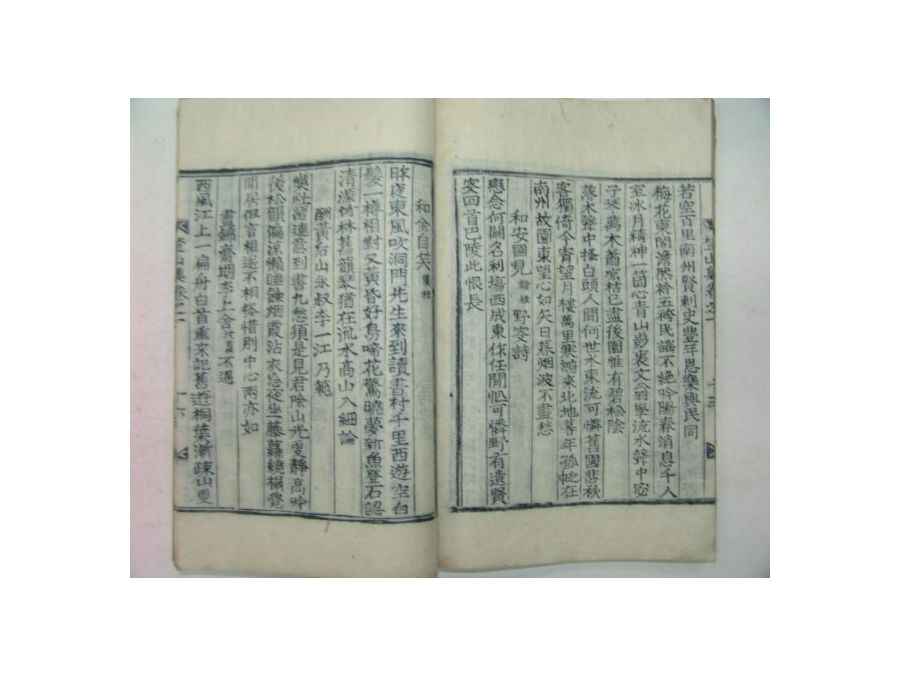 若空百里南州賢刺史豊年思樂與民同
梅花東閣澹然衿五袴民謠不絶吟陽春消息千人
室氷月精神一箇心青山影裏文翁學流水聲中宓
子琴萬木蕭索枯已盡後園惟有碧松陰
落木聲中搔白頭人間何世水東流可憐舊國悲秋
客獨倚今宵望月樓萬里寒鴻來北地暮年孤帆在
南州故園東望心如矢日暮烟波不盡愁
和安國見 野安詩
戀念何關名利場西成東作任閒忙可憐野有遺賢
安回首巴陵此恨長
和金自笑
昨夜東風吹洞門先生來到讀書村千里西遊空白
髮一樽相對又黃昏好鳥啼花驚曉夢新魚登石認
清源竹林舊韻琴猶在流水高山入細論
酬黃石山永叔李一江乃範
樂社留連意到書九愁須是見君除山光雯靜高吟
後松韻 懶睡餘烟霞沾衣 坐藤蘿繞榻覺
閒居但言相送不相 惜別中心兩亦如
書 齋烟李上舍 不遇
西風江上一扁舟白首重來記舊遊桐葉漸疎山雯